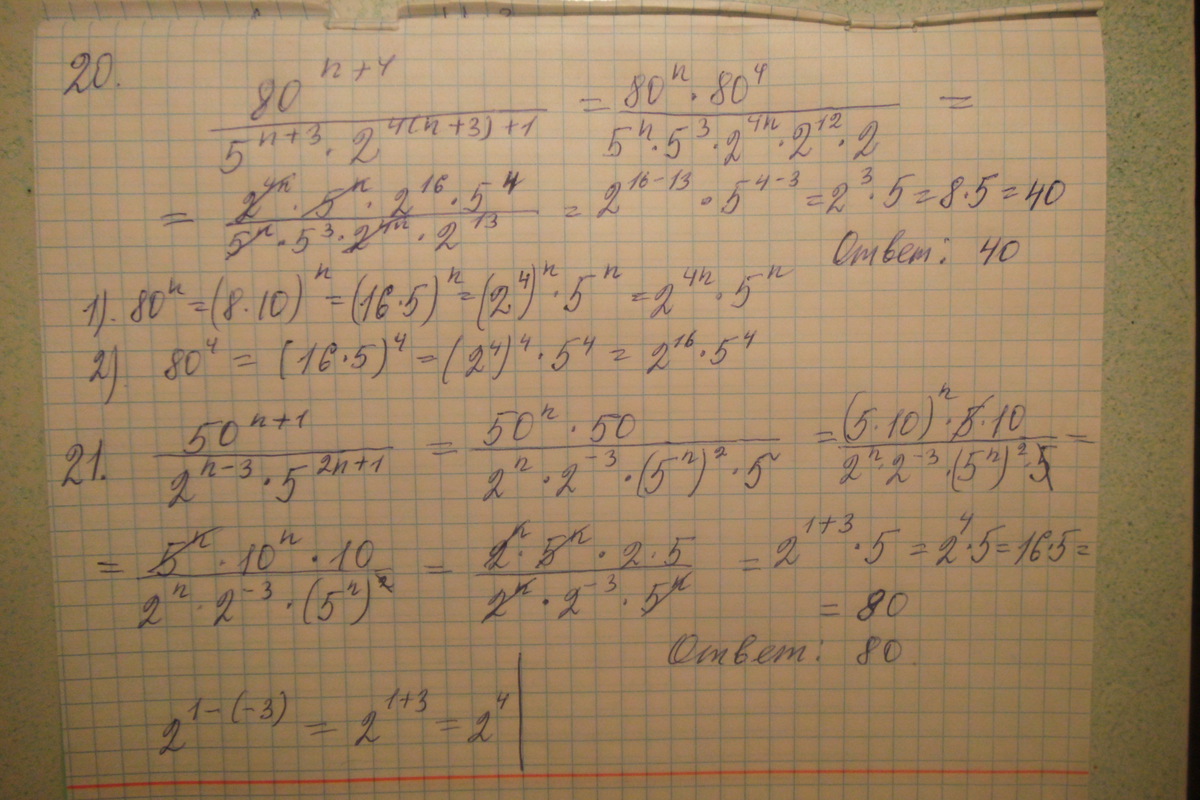 20. 80^(n+4) / (5^(n+3) · 2^(4(n+3)+1)) = (80^n · 80^4) / (5^n · 5^3 · 2^(4n) · 2^12 · 2) =
= (2^(4n) · 5^n · 2^16 · 5^4) / (5^n · 5^3 · 2^(4n) · 2^13) = 2^(16-13) · 5^(4-3) = 2^3 · 5 = 8·5 = 40
Ответ: 40
1). 80^n = (8·10)^n = (16·5)^n = (2^4)^n · 5^n = 2^(4n) · 5^n
2). 80^4 = (16·5)^4 = (2^4)^4 · 5^4 = 2^16 · 5^4
21. 50^(n+1) / (2^(n-3) · 5^(2n+1)) = (50^n · 50) / (2^n · 2^(-3) · (5^n)^2 · 5) = ((5·10)^n · 5·10) / (2^n · 2^(-3) · (5^n)^2 · 5) =
= (5^n · 10^n · 10) / (2^n · 2^(-3) · (5^n)^2) = (2^n · 5^n · 2·5) / (2^n · 2^(-3) · 5^n) = 2^(1+3) · 5 = 2^4 · 5 = 16·5 =
= 80
Ответ: 80
2^(1-(-3)) = 2^(1+3) = 2^4